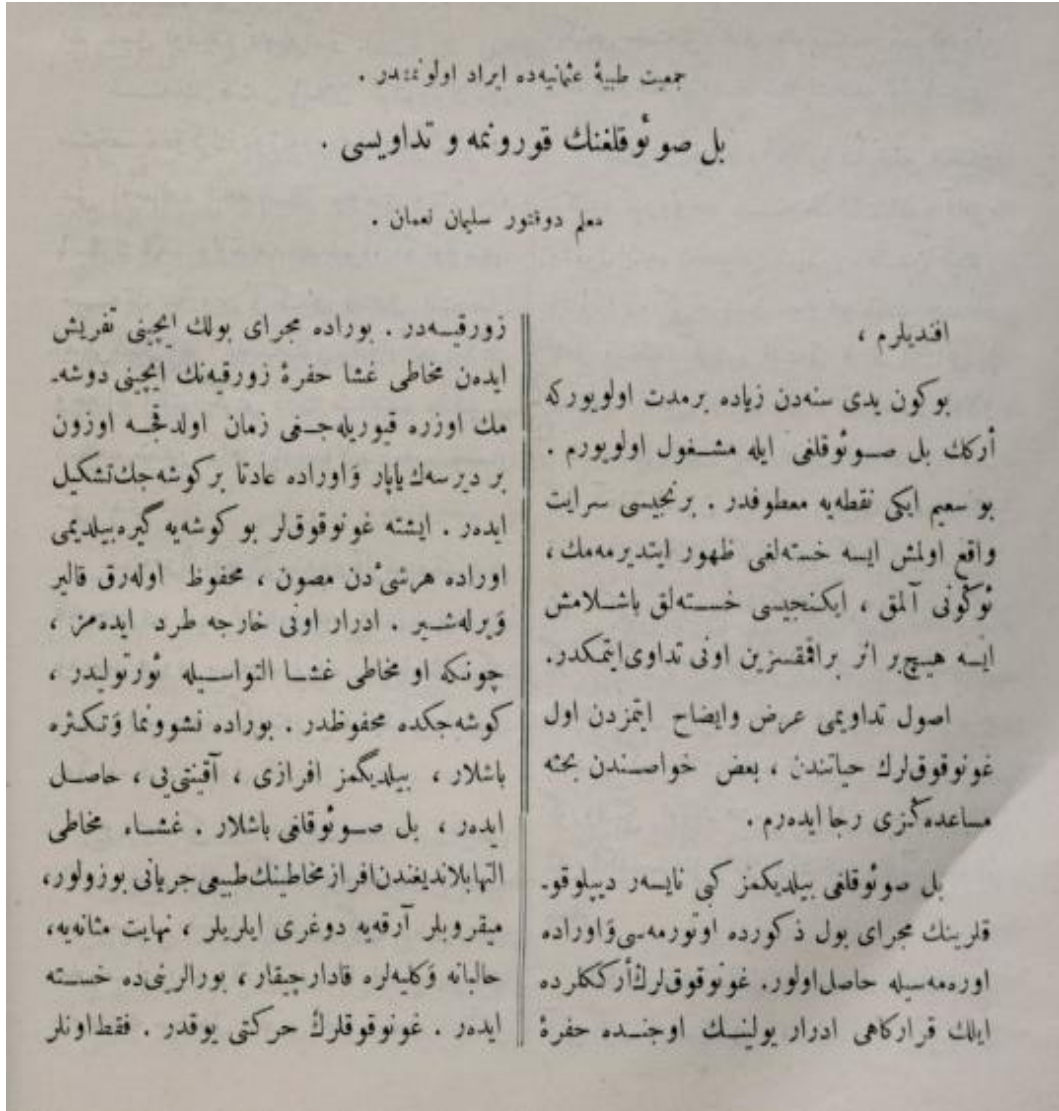 جمعیت طبیهٔ عثمانیه‌ده ایراد اولونمشدر .
بل صوئوقلغنك قورونمه و تداویسی .
معلم دوقتور سلیمان نعمان .
افندیلرم ،
بوکون یدی سنه‌دن زیاده برمدت اولویورکه
أرکك بل صوئوقلغی ایله مشغول اولویورم .
بو سعیم ایکی نقطه‌یه معطوفدر . برنجیسی سرایت
واقع اولمش ایسه خسته‌لغی ظهور ایتدیرمه‌مك ،
ئوکونی آلمق ، ایکنجیسی خسته‌لق باشلامش
ایسه هیچ‌بر اثر براقمقسزین اونی تداوی‌ایتمکدر.
اصول تداویمی عرض وایضاح ایتمزدن اول
غونوقوق‌لرك حیاتندن ، بعض خواصندن بحثه
مساعده‌کزی رجا ایده‌رم .
بل صوئوقلغی بیلدیکمز کبی نایسه‌ر دیپلوقو-
قلرینك مجرای بول ذکورده اوتورمه‌سی‌وَاوراده
اوره‌مه‌سیله حاصل‌اولور. غونوقوق‌لرڭ‌أرککلرده
ایلك قرارکاهی ادرار یولینك اوجنده حفرهٔ
زورقیه‌در . بوراده مجرای بولك ایچینی تفریش
ایده‌ن مخاطی غشا حفرهٔ زورقیه‌نك ایچینی دوشه-
مك اوزره قیوریله‌جغی زمان اولدقجه اوزون
بر دیرسه‌ك یاپار وَاوراده عادتا برکوشه‌جك‌تشکیل
ایده‌ر . ایشته غونوقوق‌لر بو کوشه‌یه گیره‌بیلدیمی
اوراده هرشی‌ٔدن مصون ، محفوظ اوله‌رق قالیر
وَیرله‌شیر . ادرار اونی خارجه طرد ایده‌مز ،
چونکه او مخاطی غشا التواسیله ئورتولیدر ،
کوشه‌جکده محفوظدر . بوراده نشوونما وَتکثره
باشلار ، بیلدیگمز افرازی ، آقینتی‌یی ، حاصل
ایده‌ر ، بل صوئوقلغی باشلار . غشاء مخاطی
التهابلاندیغندن‌افراز مخاطینك‌طبیعی‌جریانی بوزولور،
میقروبلر آرقه‌یه دوغری ایلریلر ، نهایت مثانه‌یه،
حالبانه وَکلیه‌لره قادارچیقار ، بورالرینی‌ده خسته
ایده‌ر . غونوقوقلرڭ حرکتی یوقدر . فقط‌اونلر